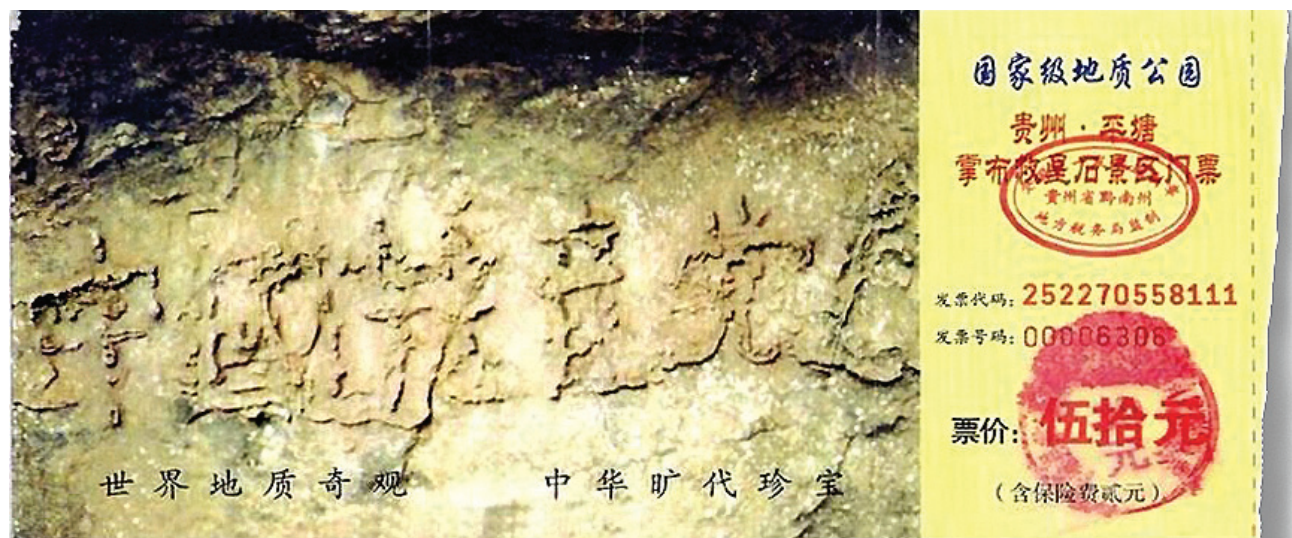 中國共產党亡
世界地质奇观 中华旷代珍宝
国家级地质公园
贵州·平塘
掌布救星石景区门票
貴州省黔南州
地方税务局监制
发票代码：252270558111
发票号码：00006306
票价：伍拾元
（含保险费贰元）